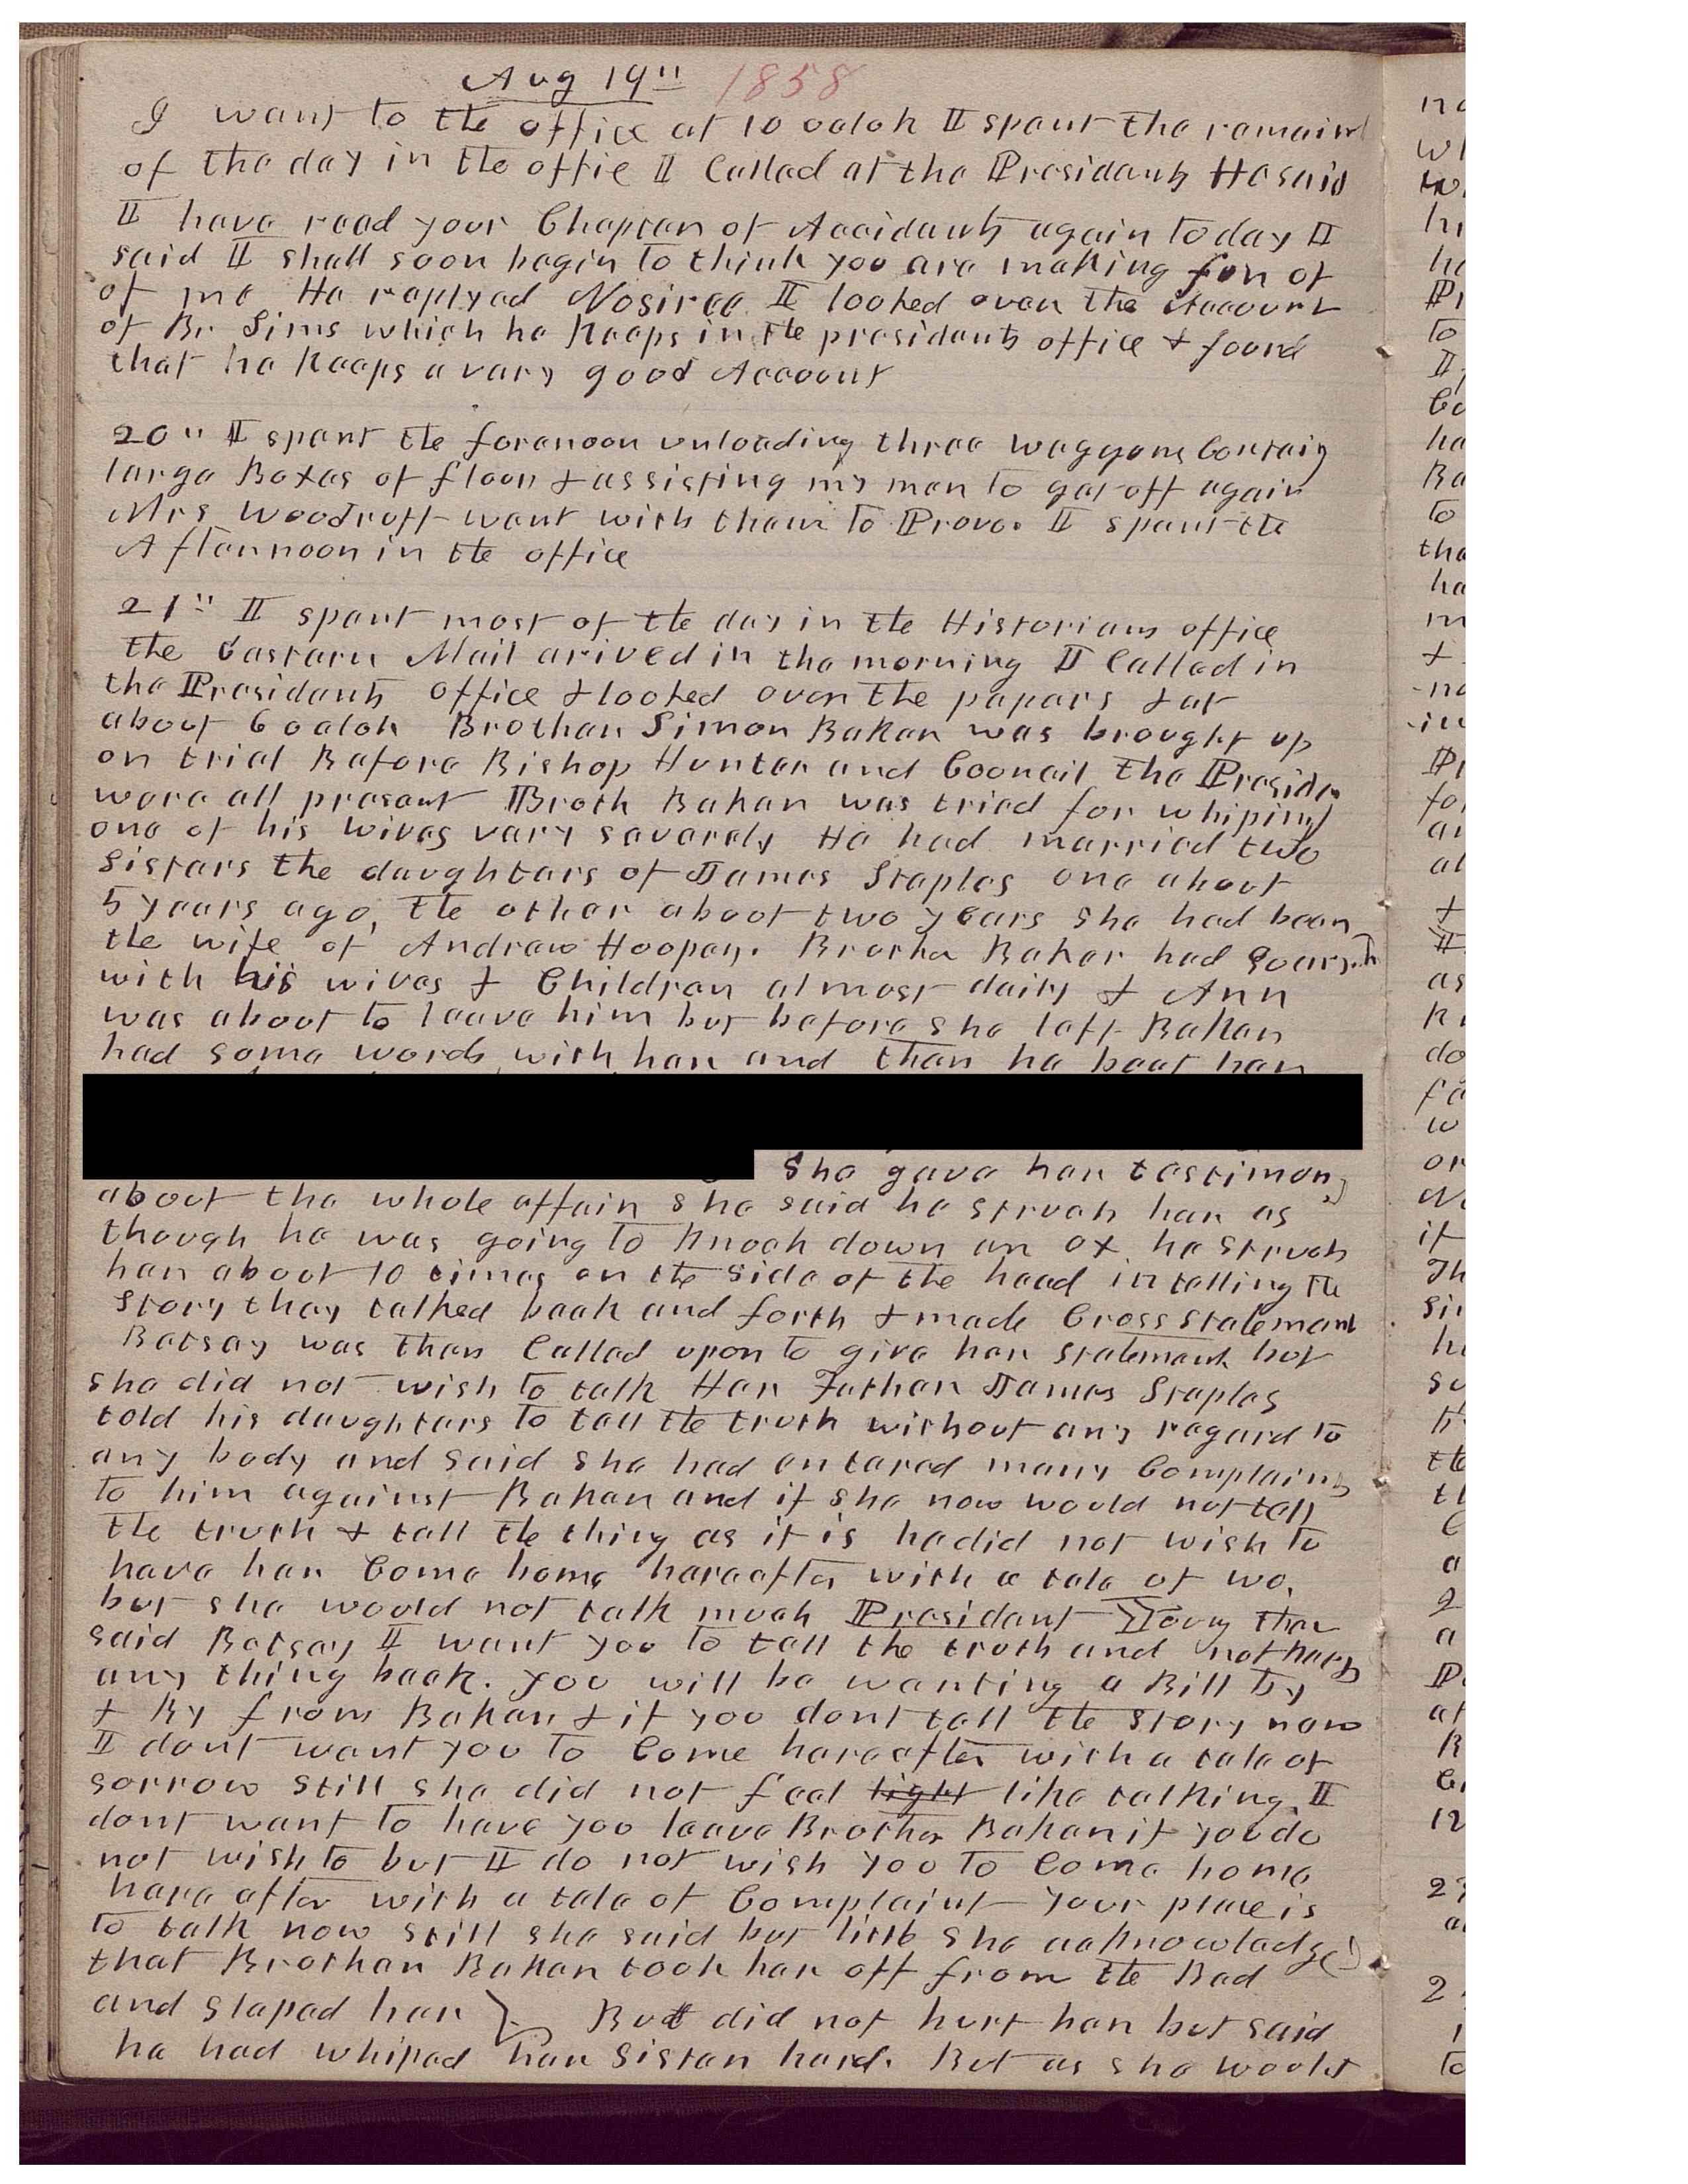 Aug 19" 1858
I went to the office at 10 oclok I spent the remaind
of the day in the offic I Called at the Presidents He said
I have read your Chapter of Accidents again to day I
said I shall soon begin to think you are making fun of
of me He replyed Nosiree I looked over the Account
of Br. Sims which he Keeps in the presidents office & found
that he Keeps a very good Account
20" I spent the forenoon unloading three waggons Containg
large Boxes of flour & assisting my men to get off again
Mrs Woodruff went with them to Provo. I spent the
Afternoon in the office
21" I spent most of the day in the Historians office
the Eastern Mail arived in the morning I Called in
the Presidents office & looked over the papers & at
about 6 oclok Brother Simon Baker was brought up
on trial Before Bishop Hunter and Councił the Preside
were all present Broth Baker was tried for whiping
one of his wives very severely He had married two
Sisters the daughters of James Staples one about
5 years ago, the other about two years she had been
the wife of Andrew Hooper. Brother Baker had
with his wives & Children almost daily & Ann
was about to leave him but before she left Baker
had some words with her and then he beat her
She gave her testimony
about the whole affair she said he struck her as
though he was going to knock down an ox he struck
her about 10 times on the side of the head in telling the
story they talked back and forth & made Cross Statement
Betsey was then Called upon to give her statement but
she did not wish to talk Her Father James Staples
told his daughters to tell the truth without any regard to
any body and said she had entered many Complaints
to him against Baker and if she now would not tell
the truth & tell the thing as it is he did not wish to
have her Come home hereafter with a tale of wo,
but she would not talk much President Young then
said Betsey I want you to tell the truth and not keep
any thing back. you will be wanting a Bill By
& By from Baker & if you dont tell the story now
I dont want you to Come hereafter with a tale of
sorrow still she did not feel light like talking. I
dont want to have you leave Brother Baker if you do
not wish to but I do not wish you to Come home
here after with a tale of Complaint your place is
to talk now still she said but little she acknowledged
that Brother Baker took her off from the Bed
and slaped her But did not hurt her but said
he had whiped her Sister hard. But as she would